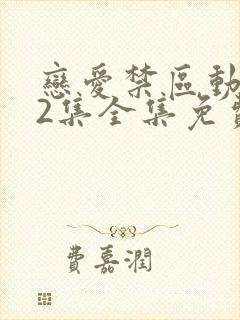 戀愛禁區動
2集全集免費
費嘉潤